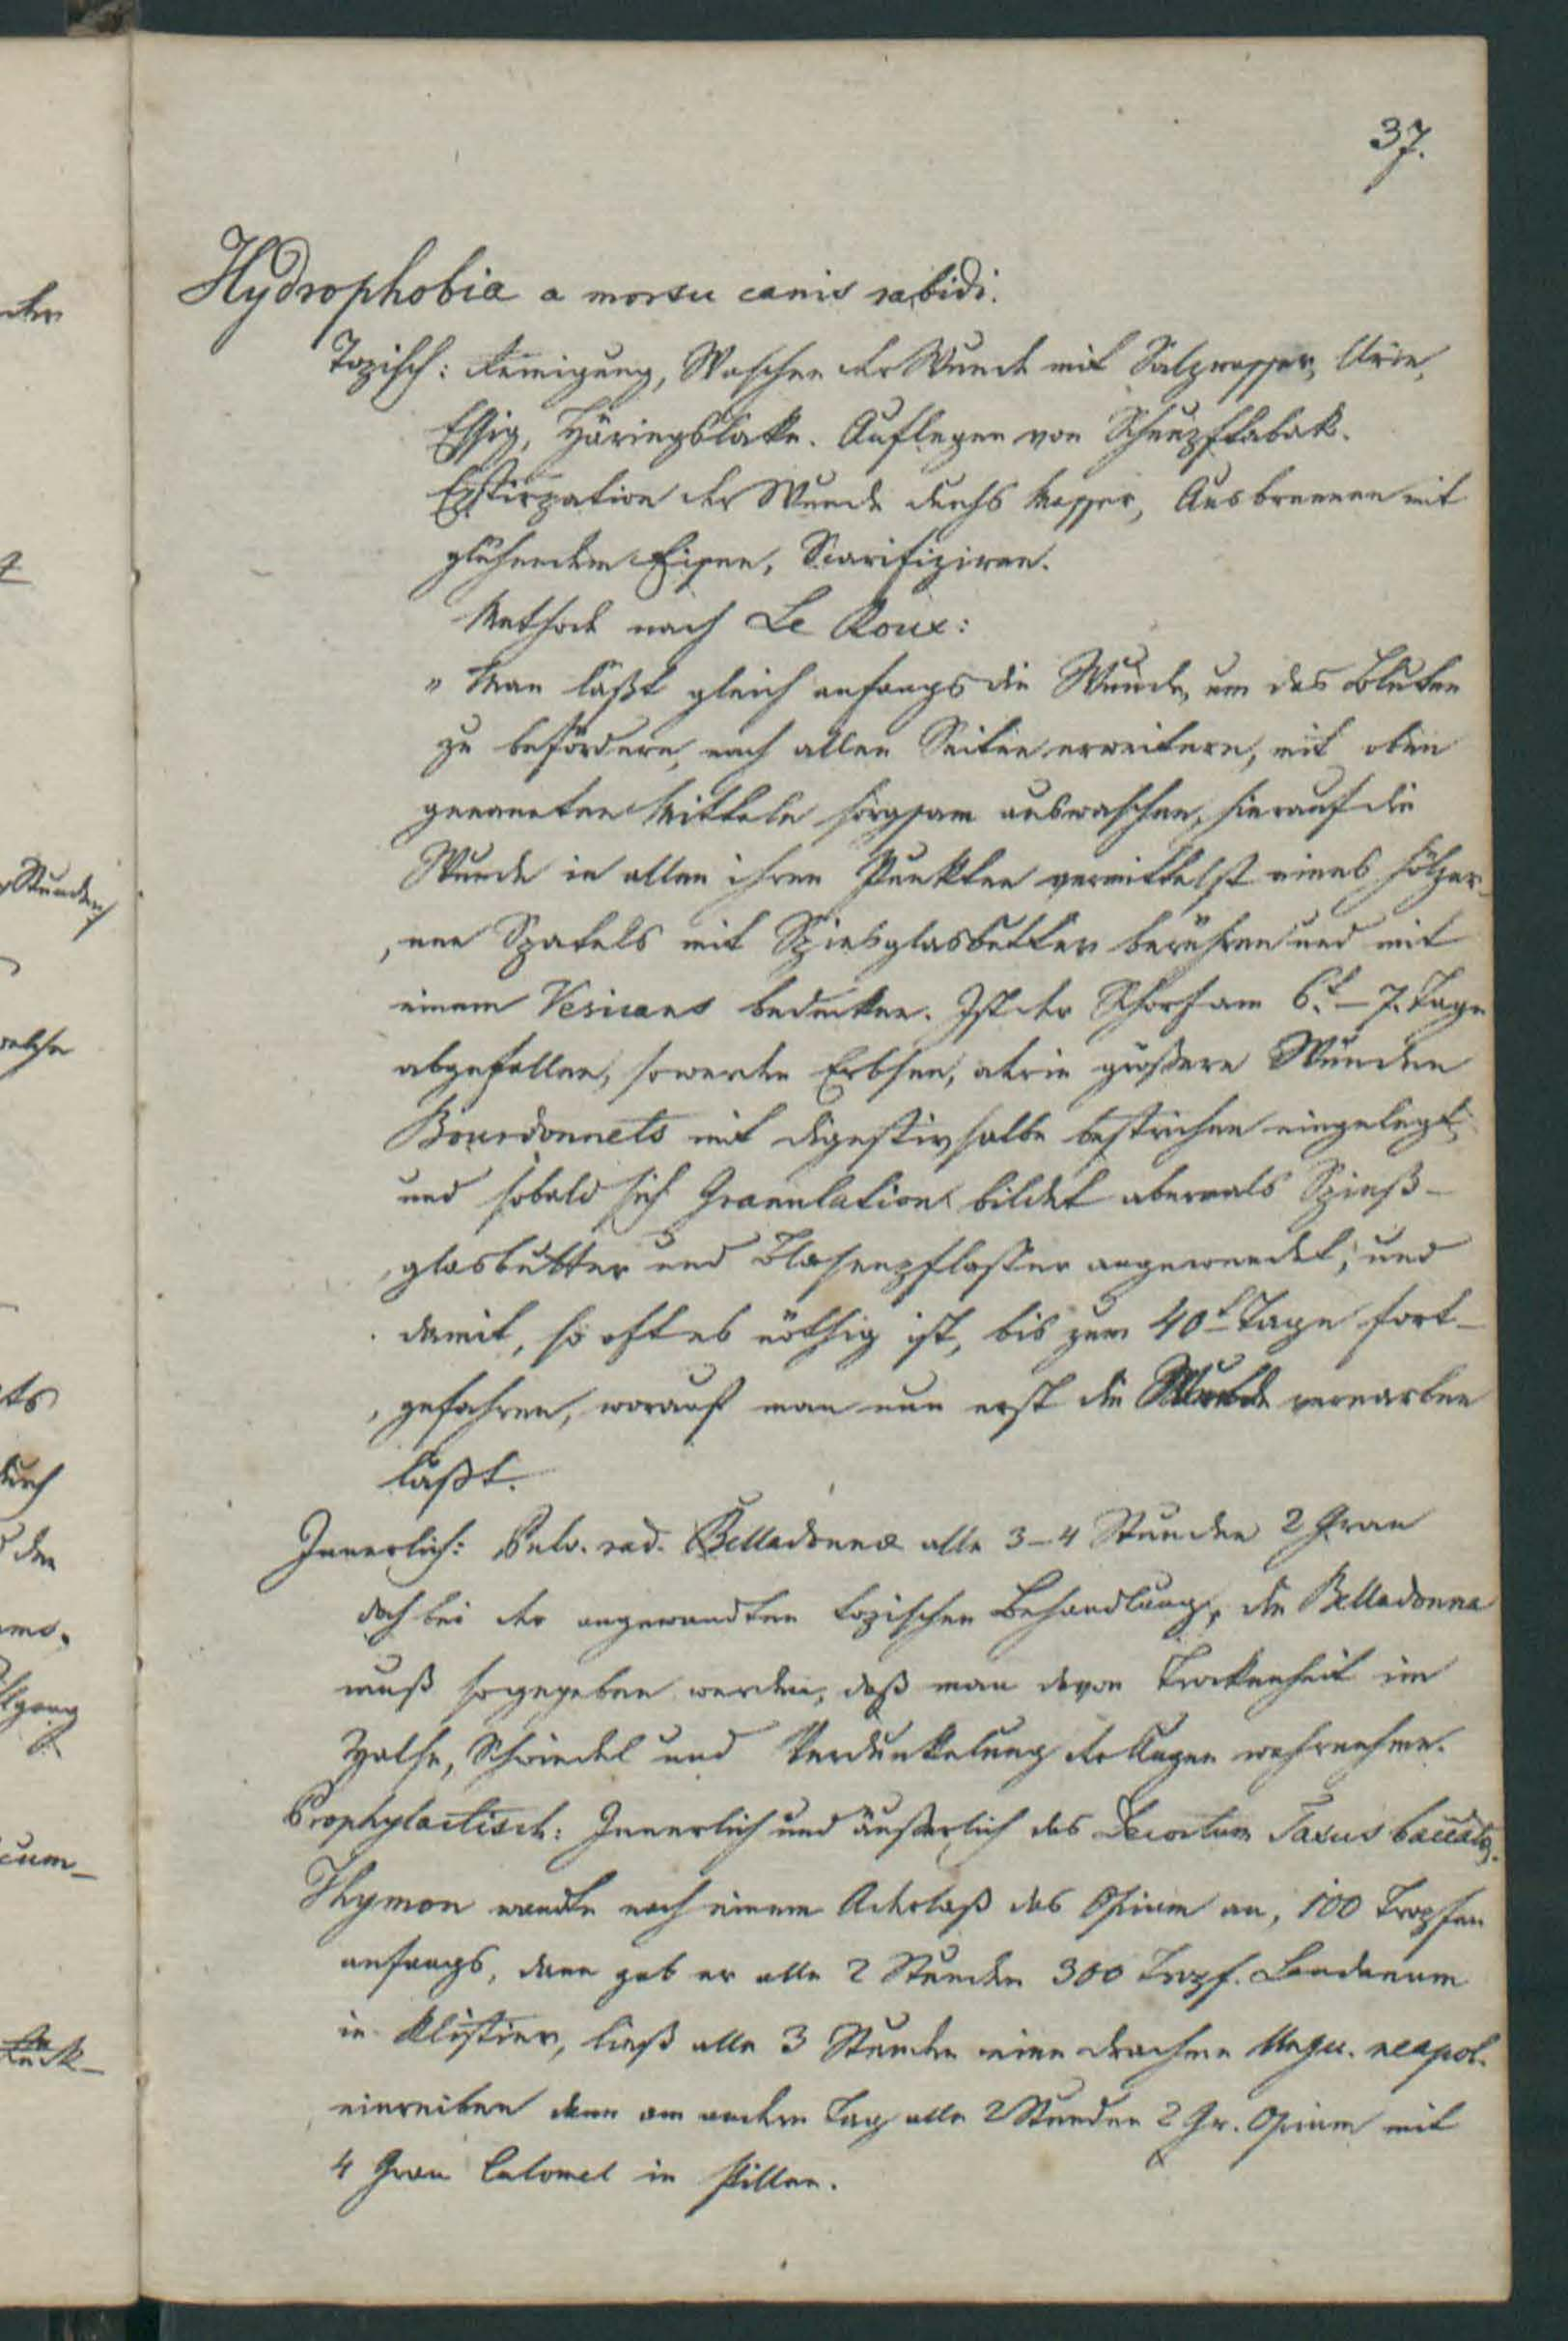 37.
Hydrophobia a morsu canis rabidi.
Topisch: Reinigung, Waschen der Wunde mit Salzwasser, Urin,
Essig, Häringslake. Auflegen von Schnupftabak.
Exstirpation der Wunde durchs Messer, Ausbrennen mit
glühendem Eisen, Scarifiziren.
Methode nach Le Roux:
" Man läßt gleich anfangs die Wunde, um das Bluten
zu befördern, nach allen Seiten erweitern, mit oben
genannten Mitteln sorgsam auswaschen, hierauf die
Wunde in allen ihren Punkten vermittelst eines hölzer-
nen Spatels mit Spiesglasbutter berühren und mit
einem Vesicans bedecken. Ist der Schorf am 6.t – 7. Tage
abgefallen, so werden Erbsen, oder in größere Wunden
Bourdonnets mit Digestivsalbe bestrichen eingelegt,
und sobald sich Granulation bildet abermals Spieß-
glasbutter und Blasenpflaster angewendet, und
damit, so oft es nöthig ist, bis zum 40t Tage fort-
gefahren, worauf man nun erst die Wunde vernarben
läßt.
Innerlich: Pulv. rad. Belladonnæ alle 3–4 Stunden 2 Gran
doch bei der angewandten topischen Behandlung, die Belladonna
muß so gegeben werden, daß man davon Trockenheit im
Halse, Schwindel und Verdunkelung der Augen wahrnehme.
Prophylactisch: Innerlich und äußerlich das Decoctum Taxus baccata.
Thymon wendte nach einem Aderlaß das Opium an, 100 Tropfen
anfangs, dann gab er alle 2 Stunden 300 Tropf. Laudanum
in Klistier, ließ alle 3 Stunden eine Drachme Ungu. neapol.
einreiben dann am andern Tag alle 2 Stunden 2 Gr. Opium mit
4 Gran Calomel in Pillen.